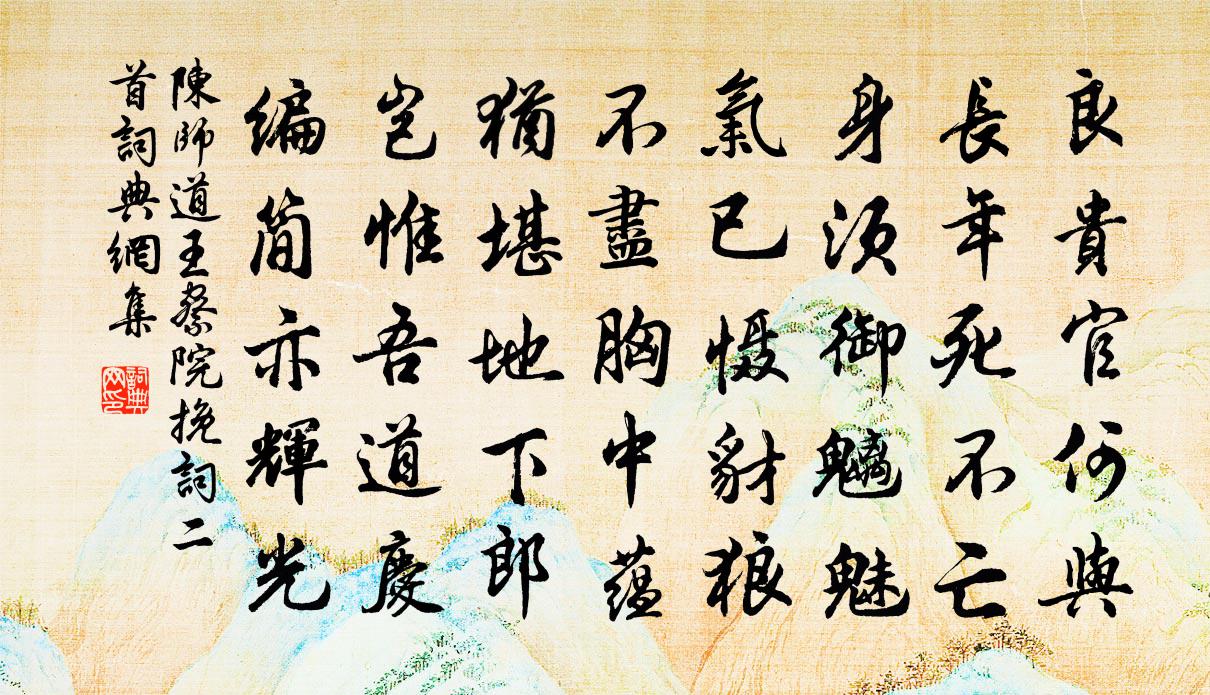 良貴官何與
長年死不亡
身須御魑魅
氣已慑豺狼
不盡胸中蘊
猶堪地下郎
豈惟吾道慶
编簡亦輝光
陳師道王察院挽詞二
首詞典網集
詞典网印